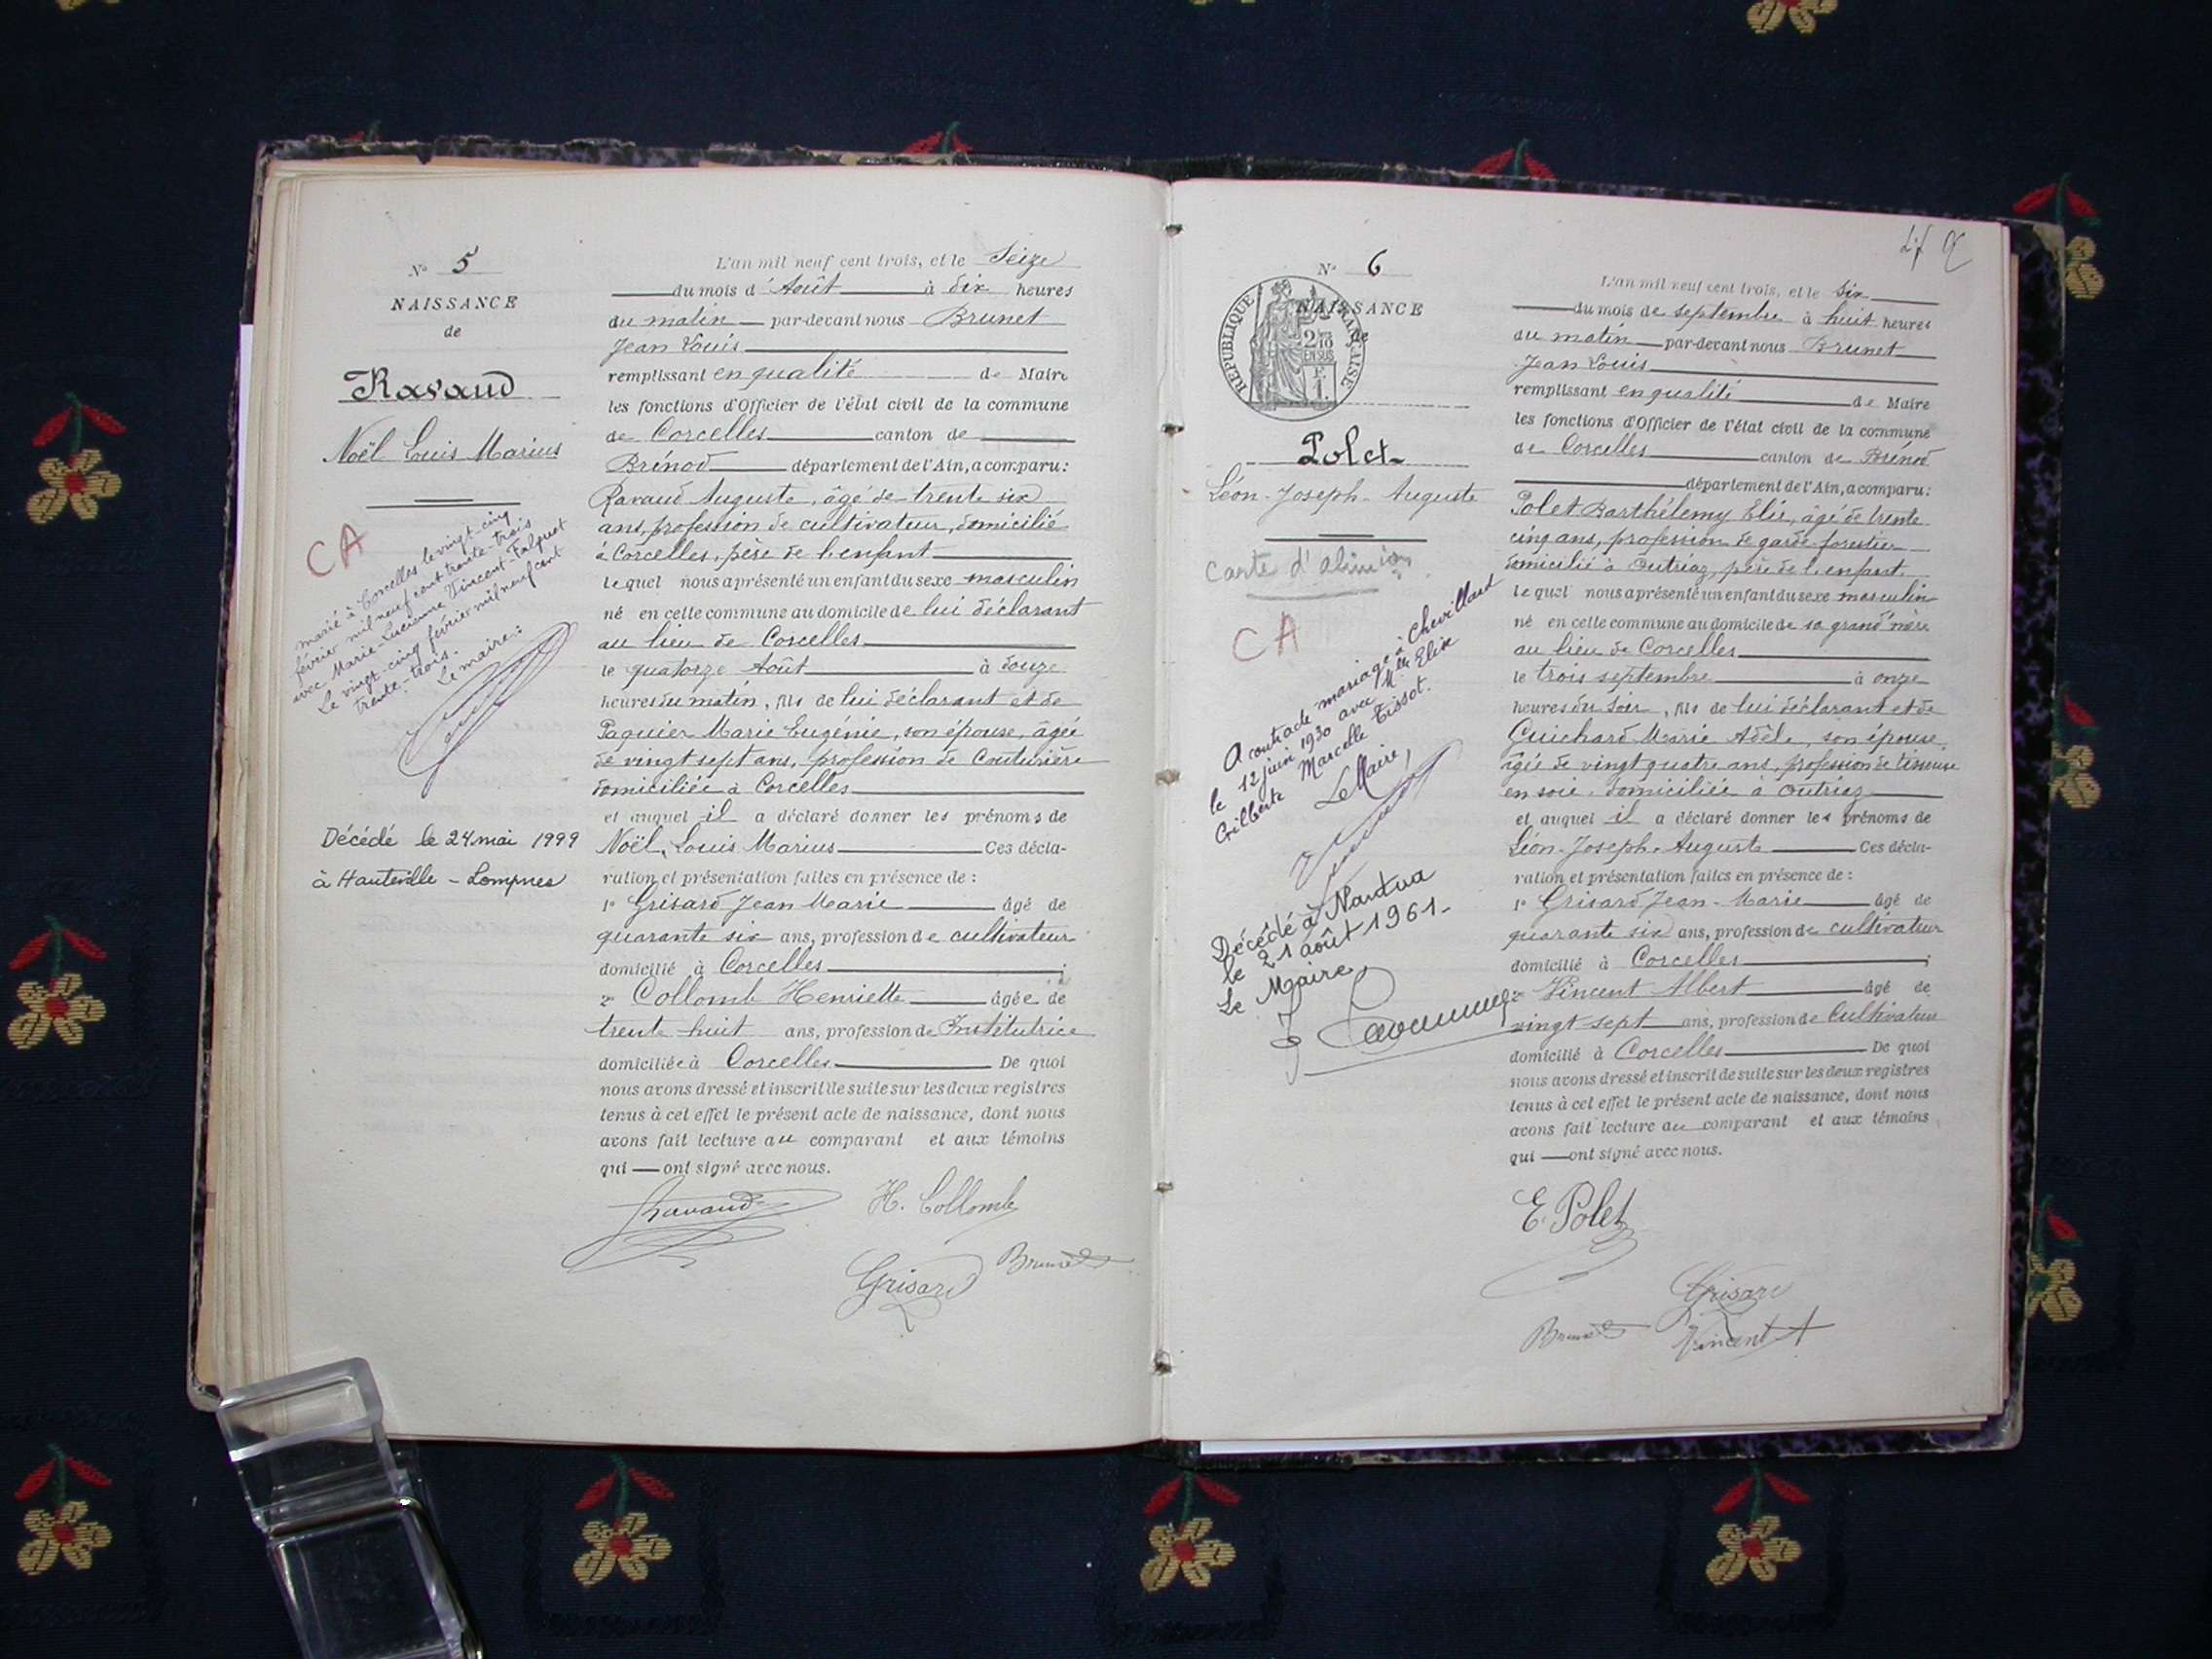 N° 5
NAISSANCE
de
Ravaud
Noël Louis Marius
CA
marié à Corcelles le vingt-cinq
février mil neuf cent trente-trois
avec Marie-Lucienne Vincent-Falquet
Le vingt-cinq février mil neuf cent
trente-trois.
Le maire:
Décédé le 24 mai 1999
à Hauteville - Lompnes
L'an mil neuf cent trois, et le Seize
du mois d'Août à dix heures
du matin par-devant nous Brunet
Jean Louis
remplissant en qualité de Maire
les fonctions d'Officier de l'état civil de la commune
de Corcelles canton de
Brénod département de l'Ain, a comparu:
Ravaud Auguste, âgé de trente six
ans, profession de cultivateur, domicilié
à Corcelles, père de l'enfant
lequel nous a présenté un enfant du sexe masculin
né en cette commune au domicile de lui déclarant
au lieu de Corcelles
le quatorze Août à douze
heures du matin, fils de lui déclarant et de
Paquier Marie Eugénie, son épouse, âgée
de vingt sept ans, profession de Couturière
domiciliée à Corcelles
et auquel il a déclaré donner les prénoms de
Noël, Louis Marius Ces décla-
ration et présentation faites en présence de :
1° Grisard Jean Marie âgé de
quarante six ans, profession de cultivateur
domicilié à Corcelles ;
2° Collomb Henriette âgée de
trente huit ans, profession de Institutrice
domiciliée à Corcelles De quoi
nous avons dressé et inscrit de suite sur les deux registres
tenus à cet effet le présent acte de naissance, dont nous
avons fait lecture au comparant et aux témoins
qui ont signé avec nous.
Ravaud H. Collomb
Grisard Brunet
N° 6
NAISSANCE
de
REPUBLIQUE FRANÇAISE
2/10
EN SUS
F.
1.
Polet
Léon-Joseph-Auguste
CA
A contracté mariage à Chevillard
le 12 juin 1930 avec Mlle Elise
Gilberte Marcelle Tissot.
Le Maire,
Décédé à Nantua
le 21 août 1961-
Le Maire
L'an mil neuf cent trois, et le Six
du mois de septembre à huit heures
du matin par-devant nous Brunet
Jean Louis
remplissant en qualité de Maire
les fonctions d'Officier de l'état civil de la commune
de Corcelles canton de Brénod
département de l'Ain, a comparu:
Polet Barthélemy Elie, âgé de trente
cinq ans, profession de garde forestier
domicilié à Outriaz, père de l'enfant.
lequel nous a présenté un enfant du sexe masculin
né en cette commune au domicile de sa grand'mère
au lieu de Corcelles
le trois septembre à onze
heures du soir, fils de lui déclarant et de
Guichard Marie Adèle, son épouse,
âgée de vingt quatre ans, profession de tisseuse
en soie, domiciliée à Outriaz
et auquel il a déclaré donner les prénoms de
Léon-Joseph-Auguste Ces décla-
ration et présentation faites en présence de :
1° Grisard Jean-Marie âgé de
quarante six ans, profession de cultivateur
domicilié à Corcelles ;
2° Vincent Albert âgé de
vingt sept ans, profession de Cultivateur
domicilié à Corcelles De quoi
nous avons dressé et inscrit de suite sur les deux registres
tenus à cet effet le présent acte de naissance, dont nous
avons fait lecture au comparant et aux témoins
qui ont signé avec nous.
E. Polet
Grisard
Brunet Vincent A